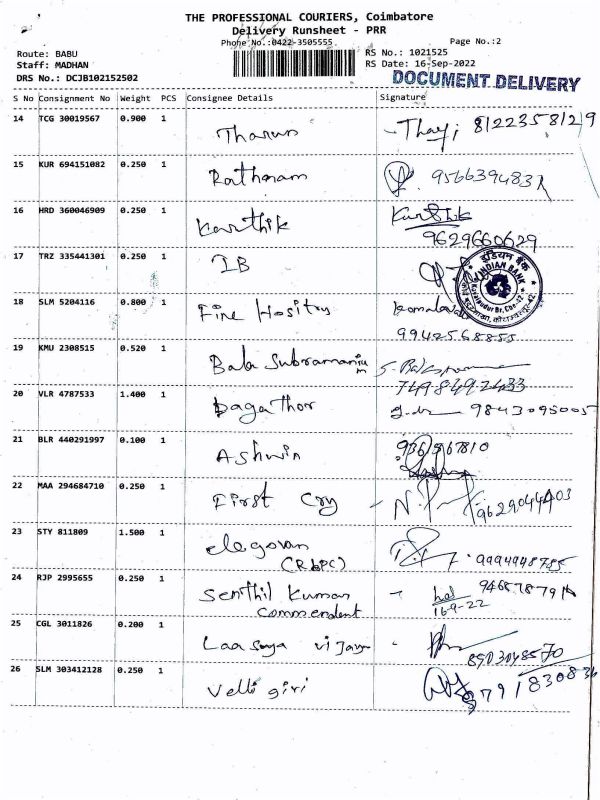 THE PROFESSIONAL COURIERS, Coimbatore
Delivery Runsheet - PRR
Phone No.:0422-3505555 Page No.:2
Route: BABU RS No.: 1021525
Staff: MADHAN RS Date: 16-Sep-2022
DRS No.: DCJB102152502 DOCUMENT DELIVERY
S No Consignment No Weight PCS Consignee Details Signature
14 TCG 30019567 0.900 1 Tharun 8122358129
15 KUR 694151082 0.250 1 Rathnam
16 HRD 360046909 0.250 1 Karthik Karthik
9629660629
17 TRZ 335441301 0.250 1 IB
इंडियन बैंक
INDIAN BANK
18 SLM 5204116 0.800 1 Fine Hositry
9942568855
19 KMU 2308515 0.520 1 Bala Subramanium
7498492433
20 VLR 4787533 1.400 1 Dagathor 9843095005
21 BLR 440291997 0.100 1 Ashwin
22 MAA 294684710 0.250 1 First Cry
23 STY 811809 1.500 1 elegovan
24 RJP 2995655 0.250 1 Senthil Kumar
Commendent 16-9-22
25 CGL 3011826 0.200 1 Laasya vijay
8903048570
26 SLM 303412128 0.250 1 Velli giri 9791830836